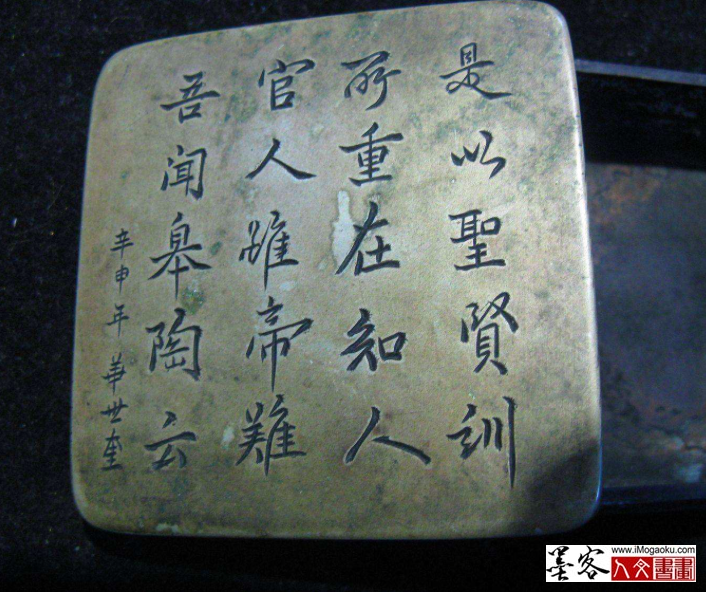 是以聖賢訓
所重在知人
官人雖帝難
吾聞皋陶云
辛申年 華世奎
墨客
www.iMogaoku.com
人文書畫